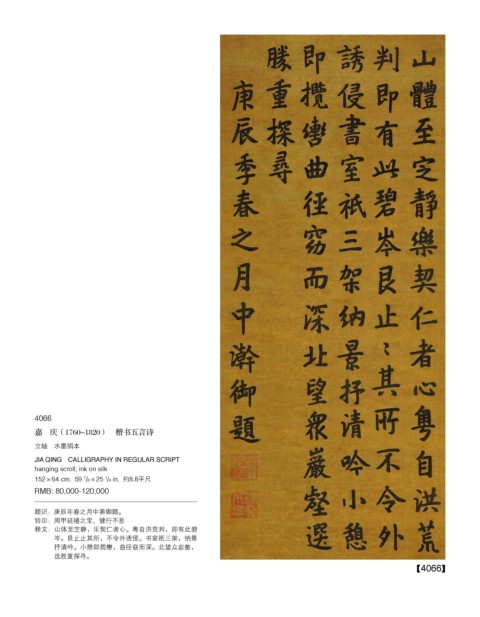 山體至定靜樂契仁者心粵自洪荒
判即有此碧岑艮止〻其所不令外
誘侵書室祇三架納景抒清吟小憩
即攬轡曲徑窈而深北望衆巖壑選
勝重探尋
庚辰季春之月中澣御題
4066
嘉 庆（1760-1820） 楷书五言诗
立轴 水墨绢本
JIA QING CALLIGRAPHY IN REGULAR SCRIPT
hanging scroll; ink on silk
152×64 cm. 59 7/8×25 1/4 in. 约8.8平尺
RMB: 80,000-120,000
题识：庚辰年春之月中澣御题。
钤印：周甲延禧之宝、健行不息
释文：山体至定静，乐契仁者心。粤自洪荒判，即有此碧
岑。艮止止其所，不令外诱侵。书室祇三架，纳景
抒清吟。小憩即揽辔，曲径窈而深。北望众岩壑，
选胜重探寻。
【4066】